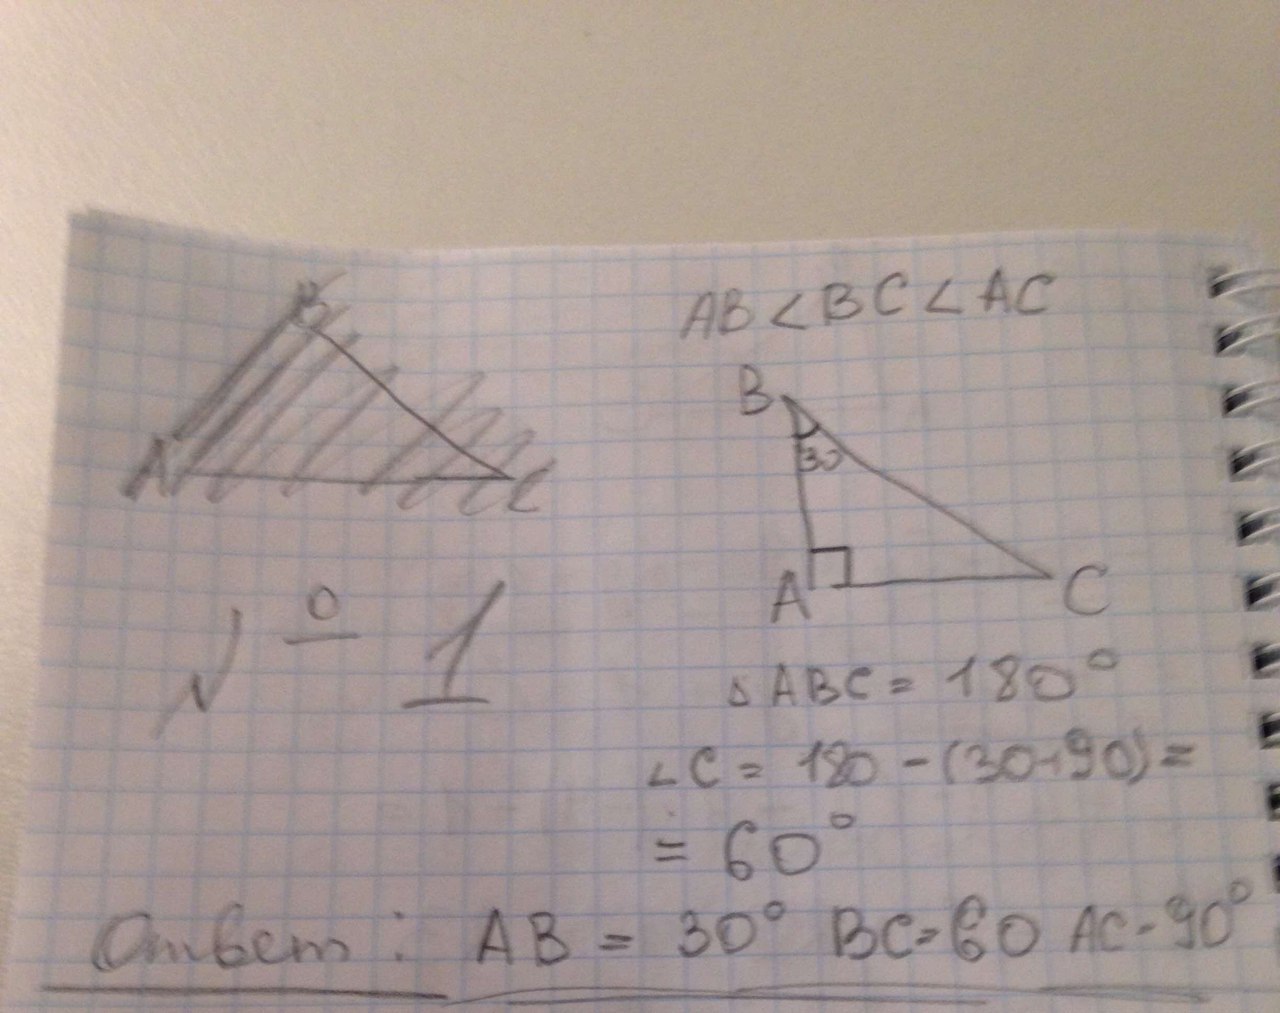 AB < BC < AC
B
A
C
B
30
A
C
№ 1
△ABC = 180°
∠C = 180 - (30+90) =
= 60°
Ответ: AB = 30° BC = 60 AC - 90°